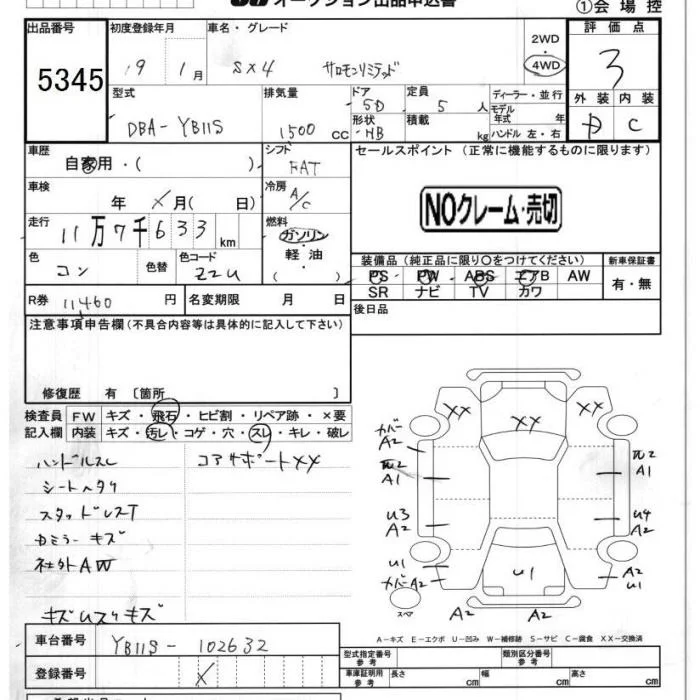 オークション出品申込書
①会場控
出品番号 初度登録年月 車名・グレード 2WD・4WD 評価点
5345 19 1月 SX4 サロモンリミテッド 3
型式 排気量 ドア 定員 ディーラー・並行 外装 内装
DBA-YB11S 1500 cc 5D 5人 モデル年式 年 D C
形状 HB 積載 kg ハンドル 左・右
車歴 シフト セールスポイント (正常に機能するものに限ります)
自家用・( ) FAT
車検 冷房 NOクレーム・売切
年 月( 日) A/C
走行 燃料
11万7千633 km ガソリン・軽油 ( )
色 色替 色コード 装備品 (純正品に限り○をつけてください) 新車保証書
コン Z2U PS PW ABS エアB AW 有・無
SR ナビ TV カワ
R券 11460 円 名変期限 月 日 後日品
注意事項申告欄 (不具合内容等は具体的に記入して下さい)
修復歴 有 〔箇所 〕
検査員 FW キズ・飛石・ヒビ割・リペア跡・×要
記入欄 内装 キズ・汚レ・コゲ・穴・スレ・キレ・破レ
ハンドルスレ コアサポートXX
シートヘタリ
スタッドレスT
ミラー キズ
社外AW
XX XX XX
カバー A2
A2
A1 A1
U3 U4
A2 A2
U1 U1 A2
カバーA2 U1
スペア A2 A2
A-キズ E-エクボ U-凹み W-補修跡 S-サビ C-腐食 XX-交換済
車台番号 YB11S-102632
登録番号
型式指定番号 参考 類別区分番号 参考
車庫証明用 参考 長さ cm 幅 cm 高さ cm